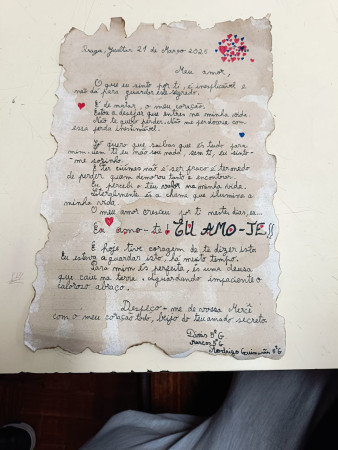 Braga, Gualtar 21 de Março 2025
Meu amor,
O que eu sinto por ti, é inexplicável e
não dá para guardar esse segredo.
É de matar, o meu coração.
Estou a desejar que entres na minha vida.
Não te quero perder. Não me perdoava com
essa perda inestimável.
Só quero que saibas que és tudo para
mim. Sem ti eu não sou nada, sem ti, eu sinto-
-me sozinho.
E ter ciúmes não é ser fraco é ter medo
de perder quem demorou tanto a encontrar.
Eu percebi o teu valor na minha vida.
Literalmente és a chama que ilumina a
minha vida.
O meu amor cresceu por ti nestes dias, eu...
Eu amo-te! EU AMO-TE!!
E hoje tive coragem de te dizer isto.
Eu estava a guardar isto, há muito tempo.
Para mim és perfeita, és uma deusa
que caiu na terra. Aguardando impaciente o
caloroso abraço.
Despeço-me de vossa Mercê
com o meu coração todo, beijo do teu amado secreto
Dinis 8ºG
Marcos 8ºG
Rodrigo Guimarães 8ºG